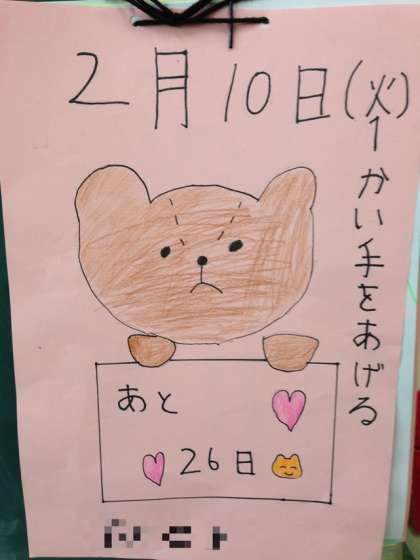 2月10日(火)
1かい手をあげる
あと
26日